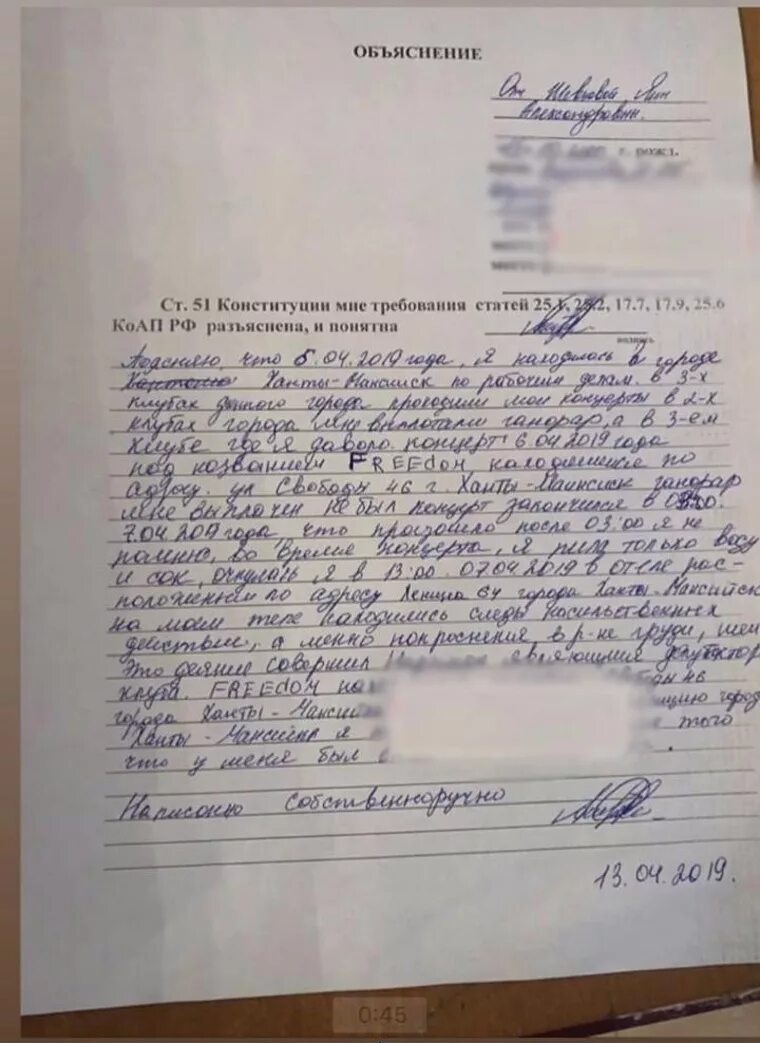 ОБЪЯСНЕНИЕ
От Шевцовой
Александровны.
г. рожд.
Ст. 51 Конституции мне требования статей 25.1, 25.2, 17.7, 17.9, 25.6
КоАП РФ разъяснена, и понятна
подпись
Поясняю, что 5.04.2019 года, я находилась в городе
Ханты-Мансийск по рабочим делам. в 3-х
клубах данного города проходили мои концерты в 2-х
клубах города мне выплотили ганорар, а в 3-ем
клубе где я давала концерт 6 04 2019 года
под названием FREEdом находящемся по
адресу. ул Свободы 46 г. Ханты-Мансийск ганорар
мне выплачен не был концерт закончился в
7.04 2019 года что произошло после 03:00 я не
помню, во время концерта, я пила только воду
и сок, очнулась я в 13:00 07.04 2019 в отеле рас-
положенным по адресу Ленина 64 города Ханты-Мансийск
на моем теле находились следы насильственных
действий, а менно покроснения в р-не груди, шеи
Это деяние совершил являющимся
клуба. FREEdом на
города Ханты-Мансийс город
Ханты-Мансийка я того
что у меня был
Написоню собственноручно
13.04.2019.
0:45